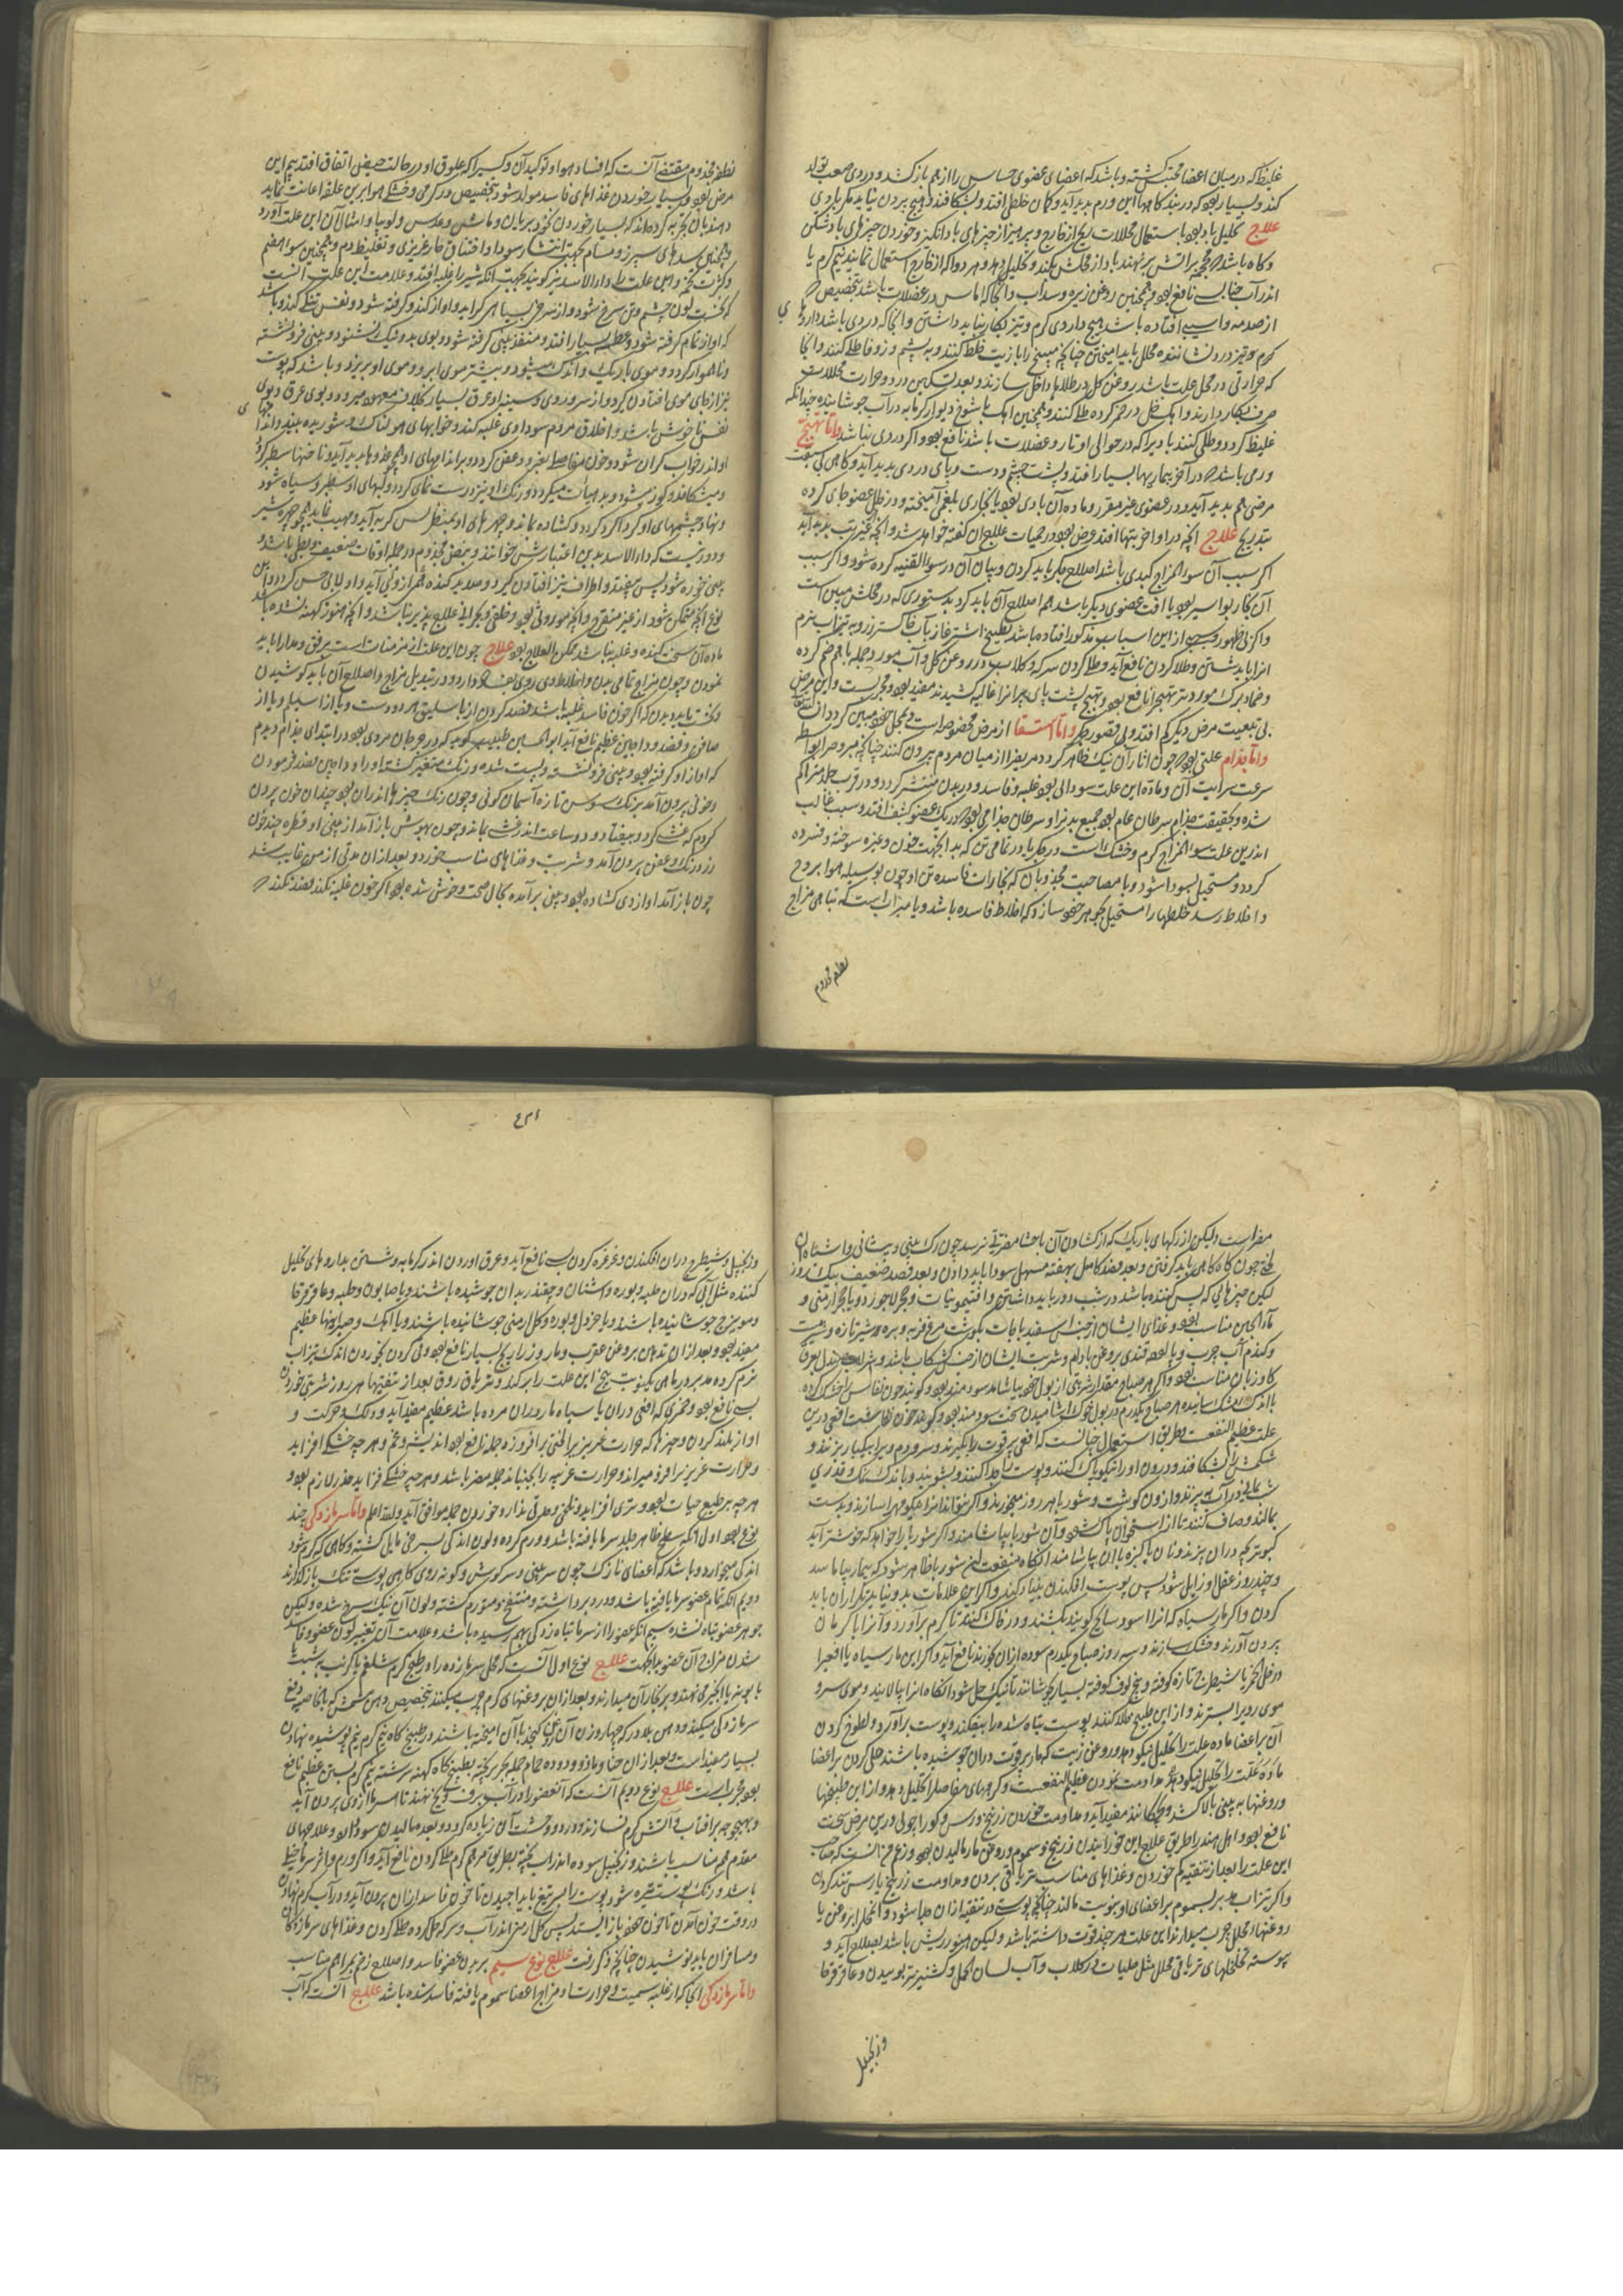 غلیظ که در میان اعضا محتبس گشته و باشد که اعضای عضوی حساس را از هم باز کشد و دردی صعب تولد
کند و بسیار بود که در بندگاهها این ورم پدید آید و گمان خلطی افتد و بشکافند و هیچ بیرون نیاید مگر بادی
علاج تحلیل باد بود باستعمال محللات ریح از خارج و پرهیز از چیزهای بادانگیز و خوردن چیزهای بادشکن
و گاه باشد که محجمه بر آتش بر نهند باد از محلش بکند و تحلیل دهد و هر دوا که از خارج استعمال نمایند نیم گرم یا
اندر آب نافع بود و همچنین روغن زیره و سداب و آنجا که اماس در عضلات باشد بتخصیص که
از صدمه و آسیبی افتاده باشد هیچ داروی گرم و تیز بکار نباید داشتن و آنجا که دردی باشد داروهای
گرم و تیز درد نشاننده محلل باید آمیختن چنانچه میبختج را با زیت خلط کنند و به پشم و زوفا طلی کنند و آنجا
که حرارتی در محل علت باشد روغن گل در طلاها داخل سازند و بعد تسکین درد و حرارت محللات
صرف بکار دارند و آهک خل در خمر کرده طلا کنند و همچنین آهک با شوخ دیوار گرمابه در آب جوشانیده چندانکه
غلیظ گردد و طلی کنند بادی را که در حوالی اوتار و عضلات باشد نافع بود و اگر دردی نباشد واما تهیج
ورمی باشد که در آخر بیماریها بسیار افتد و پشت چشم و دست و پای دردی پدید آید و گاهی بی سبقت
مرضی هم پدید آید و در عضوی غیر مقرر و ماده آن بادی بود یا بخاری بلغمی آمیخته و در خلل عضو جای کرده
بتدریج علاج آنچه در اواخر تبها افتد و مرض بود در حمیات علاج آن گفته خواهد شد و آنچه غیر تب پدید آید
اگر سبب آن سوء المزاج کبدی باشد اصلاح جگر باید کردن و بیان آن در سوء القنیه کرده شود و اگر سبب
آن بخار بواسیر بود یا آفت عضوی دیگر باشد هم اصلاح آن باید کرد بدستوری که در محلش مبین است
و اگر بی ظهور سببی از این اسباب مذکور افتاده باشد بطبیخ اشترغاز یا آب خاکستر رز و به تیزاب نرم
آنرا باید شستن و طلا کردن نافع آید و طلا کردن سرکه و گلاب و درد روغن گل و آب مورد جمله با هم ضم کرده
و ضماد برگ مورد تر تهیج را نافع بود و تهیج پشت پای پیرانرا غالیه کشیدن مفید بود و مجرب است و این مرض
بی تبعیت مرض دیگر کم افتد و بی قصور جگر واما استسقا از مرض مخصوصه است و بمحل خود مبین گردد ان شاء الله تعالی
واما جذام علتی بود که چون آثار آن نیک ظاهر گردد مریض را از میان مردم بیرون کنند چنانچه مبروص را بواسطه
سرعت سرایت آن و ماده این علت سودائی بود غلبه و فاسد و در بدن منتشر گردد و در قرب جلد متراکم
شده و بحقیقت جذام سرطان عام بود جمیع بدن را و سرطان جذامی بود که در یک عضو کثیف افتد و سبب غالب
اندرین علت سوء المزاج گرم و خشک است در جگر یا در تمامی تن که بدان جهت خون و غیره سوخته و فسرده
گردد و مستحیل بسودا شود و یا مصاحبت مجذوبان که بخارات فاسده تن او چون بوسیله هوا بروح
و اخلاط رسد خلطها را مستحیل بجوهر خود سازد که اخلاط فاسده باشد و یا میراث است که تباهی مزاج
نطفه مجذوم
نطفه مجذوم مقتضی آنست که افساد هوا و تولید آن و کسی را که علوق او در حالت حیض اتفاق افتد بیم این
مرض بود و بسیار خوردن غذاهای فاسد مولد سودا بتخصیص در گرمی و خشکی هوا برین علت اعانت نماید
و هندیان تجربه کرده‌اند که بسیار خوردن نخود بریان و ماش و عدس و لوبیا و امثال آن این علت آورد
و همچنین سده‌های سپرز و مسام بجهت انتشار سودا و اختناق حار غریزی و تغلیظ دم و همچنین سوء الهضم
و کثرت تخم و این علت را داء الاسد نیز گویند بجهت آنکه شیر را غلبه افتد و علامت این علت آنست
که نخست لون چشم و تن سرخ شود و از سرخی بسیاهی گراید و آواز کند و گرفته شود و نفس تنگی کند و باشد
که آواز تمام گرفته شود و عطسه بسیار افتد و منفذ بینی گرفته شود و بوی بد و نیک نشنود و بینی فرو نشسته
و ناهموار گردد و موی باریک و اندک میشود و بیشتر موی ابرو و موی او بریزد و باشد که پوست
نیز از جای موی افتادن گیرد و از سر و روی و سینه او عرق بسیار بخلاف معهود میرود و بوی عرق و بوی
نفس ناخوش باشد و اخلاق مردم سوداوی غلبه کند و خوابهای هولناک و شوریده بیند و اندامهای
او اندر خواب گران شود و خون مفاصل بفسرد و عفن گردد و بر اندامهای او همچو غددها پدید آید و ناخنها سطبر گردد
و میشکافد و کوژ میشود و بد هیأت میگردد و رنگ او نیز درست نمی گردد و لبهای او سطبر و سیاه شود
و نهاد چشمهای او گرداگرد گردد و گشاده بماند و چهره‌های او بمنظر بس کریه آید و مهیب نماید همچو چهره شیر
و دور نیست که داء الاسد بدین اعتبارش خوانند و نبض مجذوم در جمله اوقات ضعیف و بطی باشد و
بینی خوره شود پس بیفتد و اطراف نیز افتادن گیرد و صدید گنده خراز وی آید و اولا بی حس گردد و از این
نوع آنچه متمکن شود از غیر متقرح و آنچه موروثی بود و طبیعی و بجز این علاج پذیر نباشد و آنچه هنوز کهنه نشده باشد
و ماده آن سخت گنده و غلبه نباشد ممکن العلاج بود علاج چون این علت از مزمنات است برفق و مدارا باید
نمودن و چون مزاج تمامی بدن و اخلاط وی روی بفساد دارد در تبدیل مزاج و اصلاح آن باید کوشیدن
و نخست باید دیدن که اگر خون فاسد غلبه باشد فصد کردن از باسلیق هر دو دست و یا از اسیلم و یا از
صافن و فصد وداجین عظیم نافع آید ابوالحسن طبیب گوید که در جرجان مردی بود در ابتدای جذام دیدم
که آواز او گرفته بود و بینی فرو نشسته و پست شده و رنگ متغیر گشته او را وداجین فصد فرمودن
و خونی بیرون آمد برنگ سوسن تازه آسمان گونی و چون رنگ چیزها اندران بود چندان خون بیرون
کردم که غشی کرد و بیفتاد و دو ساعت اندر غشی بماند و چون بهوش باز آمد از بینی او قطره چند خون
زرد رنگ و عفن بیرون آمد و شربت و غذاهای مناسب خورد و بعد از آن مدتی از من غایب شد
چون باز آمد آواز وی گشاده بود و بینی بر آمده بحال صحت و خوش شده بود اگر خون غلبه نکند فصد نکنند که
مضر است ولیکن از رگهای باریک که از گشادن آن باعضا مضرتی نرسد چون رگ بینی و پیشانی و اشتباه آن
لختی خون گاه گاهی باید گرفتن و بعد فصد کامل بهفته مسهل سودا باید دادن و بعد فصد ضعیف بیک روز
لیکن چیزهائی که پس کننده باشد در شب دور باید داشتن و افتیمونیات و حجر لاجورد و یا حجر ارمنی و
ماء الجبن مناسب بود و غذای ایشان از جنس اسفیدباجات بگوشت مرغ فربه و بره و شیر تازه و هریسه
و گندم آب چرب و پالوده قندی بروغن بادام و شربت ایشان از جنس کشکاب باشد و صندل بعرق
گاوزبان مناسب بود و اگر هر صباح مقدار شربتی از بول خود بیاشامد سودمند بود و گویند خون نفاس را خشک کرده
با اندک مشک ساییده هر صباح یکدرم در بول خود آشامیدن سخت سودمند بود و گویند خوردن گوشت افعی درین
علت عظیم المنفعت و طریق استعمال چنانست که افعی پر قوت را بگیرند و سر و دم ویرا بیکبار بزنند و
شکمش را بشکافند و درون او را نیکو پاک کنند و پوست را جدا کنند و بشویند و با اندک نمک و قدری
شبت در آب بپزند و از آن گوشت و شوربا هر روز میخورند و اگر نتوانند آنرا نیکو مهرا سازند و بدست
بمالند و صاف کنند تا از استخوان پاک شود و آن شوربا بیاشامند و اگر شوربا را خواهد که خوشتر آید
کبوتر بچه در آن بپزند و نان پاکیزه با آن بیاشامند آنگاه منفعت این شوربا ظاهر شود که بیمار بیاماسد
و چند روز عقل او زایل شود پس پوست افکندن بنیاد کند و اگر این علامات بدو نیاید تکرار آن باید
کردن و اگر مار سیاه که آنرا اسود سالخ گویند بکشند و در خاک کنند تا کرم بر آورد و آنرا با کرمان
بیرون آورند و خشک سازند و سه روز صباح یکدرم سوده از آن بخورند نافع آید و اگر این مار سیاه یا افعی را
در خل خمر با شیطرج تازه کوفته و بیخ لوف کوفته بسیار بجوشانند تا نیک حل شود آنگاه آنرا بپالایند و موی سر و
موی رو بسترند و از این طبیخ طلا کنند پوست تباه شده را بیفکند و پوست بر آورد و لطوخ کردن
آن بر اعضا ماده علت را تحلیل نیکو دهد و روغن زیت که مار بقوت در آن جوشیده باشند طلی کردن بر اعضا
ماده علت را تحلیل نیکو دهد مداومت نمودن عظیم المنفعت و گرههای مفاصل را تحلیل دهد و از این طبیخها
و روغنها به بینی بالا کشند و بچکانند مفید آید و مداومت خوردن زرنیخ و رس و گورا چوبی درین مرض سخت
نافع بود و اهل هند را طریق علاج این خورانیدن زرنیخ و سموم و روغن مار مالیدن بود و زعم من آنست که صاحب
این علت را بعد از تنقیه کم خوردن و غذاهای مناسب تریاقی بردن و مداومت زرنیخ یا رس تند کردن
و اگر تیزاب مدبر بسموم بر اعضای او بنوبت مالند چنانچه پوستی در تنقیه از آن جدا شود و آن محل را بروغن یا
روغنهاء محلل چرب میدارند این علت هر چند قوت داشته باشد ولیکن هنوز در ریش باشد بصلاح آید و
پیوسته تخلخلهای تریاقی محلل مثل حلیات و گلاب و آب لسان الحمل و کشنیز تر بوییدن و عاقرقرحا
و زنجبیل
و زنجبیل و شیطرج در آن افکندن و غرغره کردن بسی نافع آید و عرق آوردن اندر گرمابه و شستن بداروهای تحلیل
کننده مثل آبی که در آن حلبه و بوره و اشنان و چغندر بدان جوشیده باشند و یا صابون و حلبه و عاقرقرحا
و مویزج جوشانیده باشند و یا خردل و بوره و گل ارمنی جوشانیده باشند و یا آهک و صابونها عظیم
مفید بود و بعد از آن تدهین بروغن عقرب و مار و زراریح بسیار نافع بود و قی کردن بخوردن اندک تیزاب
نرم کرده مدبر در ماهی یکنوبت بیخ این علت را بر کند و تریاق فاروق بعد از تنقیتها هر روز شربتی خوردن
بسی نافع بود و خمری که افعی در آن یا سیاه مار در آن مرده باشد عظیم مفید آید و دلک و حرکت و
آواز بلند کردن و چیزها که حرارت غریزی بر افروزد جمله نافع بود اندیشه و غم و هر چه خشکی افزاید
و حرارت غریزی را فرو میراند و حرارت غریبه را بجنباند جمله مضر باشد و هر چیز خشکی فزاید حذر لازم بود و
هر چه بر طبع حیات بود و تری افزاید و تلخی و حدتی ندارد خوردن جمله موافق آید و الله اعلم واما سرمازدگی چند
نوع بود اول آنکه سطح ظاهر جلد سرما یافته باشد و ورم کرده و لون اندکی بسرخی مایل گشته و گاهی که گرم شود
اندکی میخارد و باشد که اعضای نازک چون سر بینی و سر گوش و گونه روی گاهی پوست تنک باز گذارند
دویم آنکه تمام عضو سرما یافته باشد و درد برداشته و منتفخ و متورم گشته و لون آن نیک سرخ شده ولیکن
جوهر عضو تباه نشده سیم آنکه عضو را از سرما تباه زدگی بهم رسیده باشد و علامت آن تغییر لون عضو و فاسد
شدن مزاج آن عضو بدانجهت علاج نوع اول آنست که محل سرمازده را در طبیخ گرم شلغم یا کرنب یا شبت یا
بابونه یا انجیر می نهند و بر بخار آن میدارند و بعد از آن بروغنهای گرم چرب میکنند بتخصیص دهن مشمش که بالخاصیه دفع
سرمازدگی میکند و دهن بلادر که چهار وزن آن روغن کنجد با آن آمیخته باشند و در طبیخ کاه نیم گرم نیم پوشیده نهادن
بسیار مفید است و بعد از آن حنا و مازو و دوده خام جمله بحریر بیخته بطبیخ کاه کهنه سرشته نیم گرم بستن عظیم نافع
بود و مجرب است علاج نوع دویم آنست که آن عضو را در آب برف و یخ نهند تا سرما از وی بیرون آید
و بهیچوجه بر آفتاب و آتش گرم نسازند و درد و وحشت آن زیاده گردد و بعد مالیدن سود دارد و علاجهای
مقدم هم مناسب باشند و زنجبیل سوده اندر آب پخته بطریق مرهم گرم طلا کردن نافع آید و اگر ورم و اثر سرما غلیظ
باشد و رنگ پوست تیره شود پوست را بسر تیغ باید آجیدن تا خون فاسد از آن بیرون آید و در آب گرم نهادن
در وقت خون آمدن تا خون خود باز ایستد پس گل ارمنی اندر آب و سرکه حل کرده طلا کردن و غذاهای سرمازدگان
و مسافران باید نوشیدن چنانچه ذکر رفت علاج نوع سیم بریدن عضو فاسد و اصلاح زخم بمراهم مناسب
واما سرمازدگی آنجا که از غلبه سمیت و حرارت و مزاج اعضا سموم یافته فاسد شده باشد علاج آنست که آب